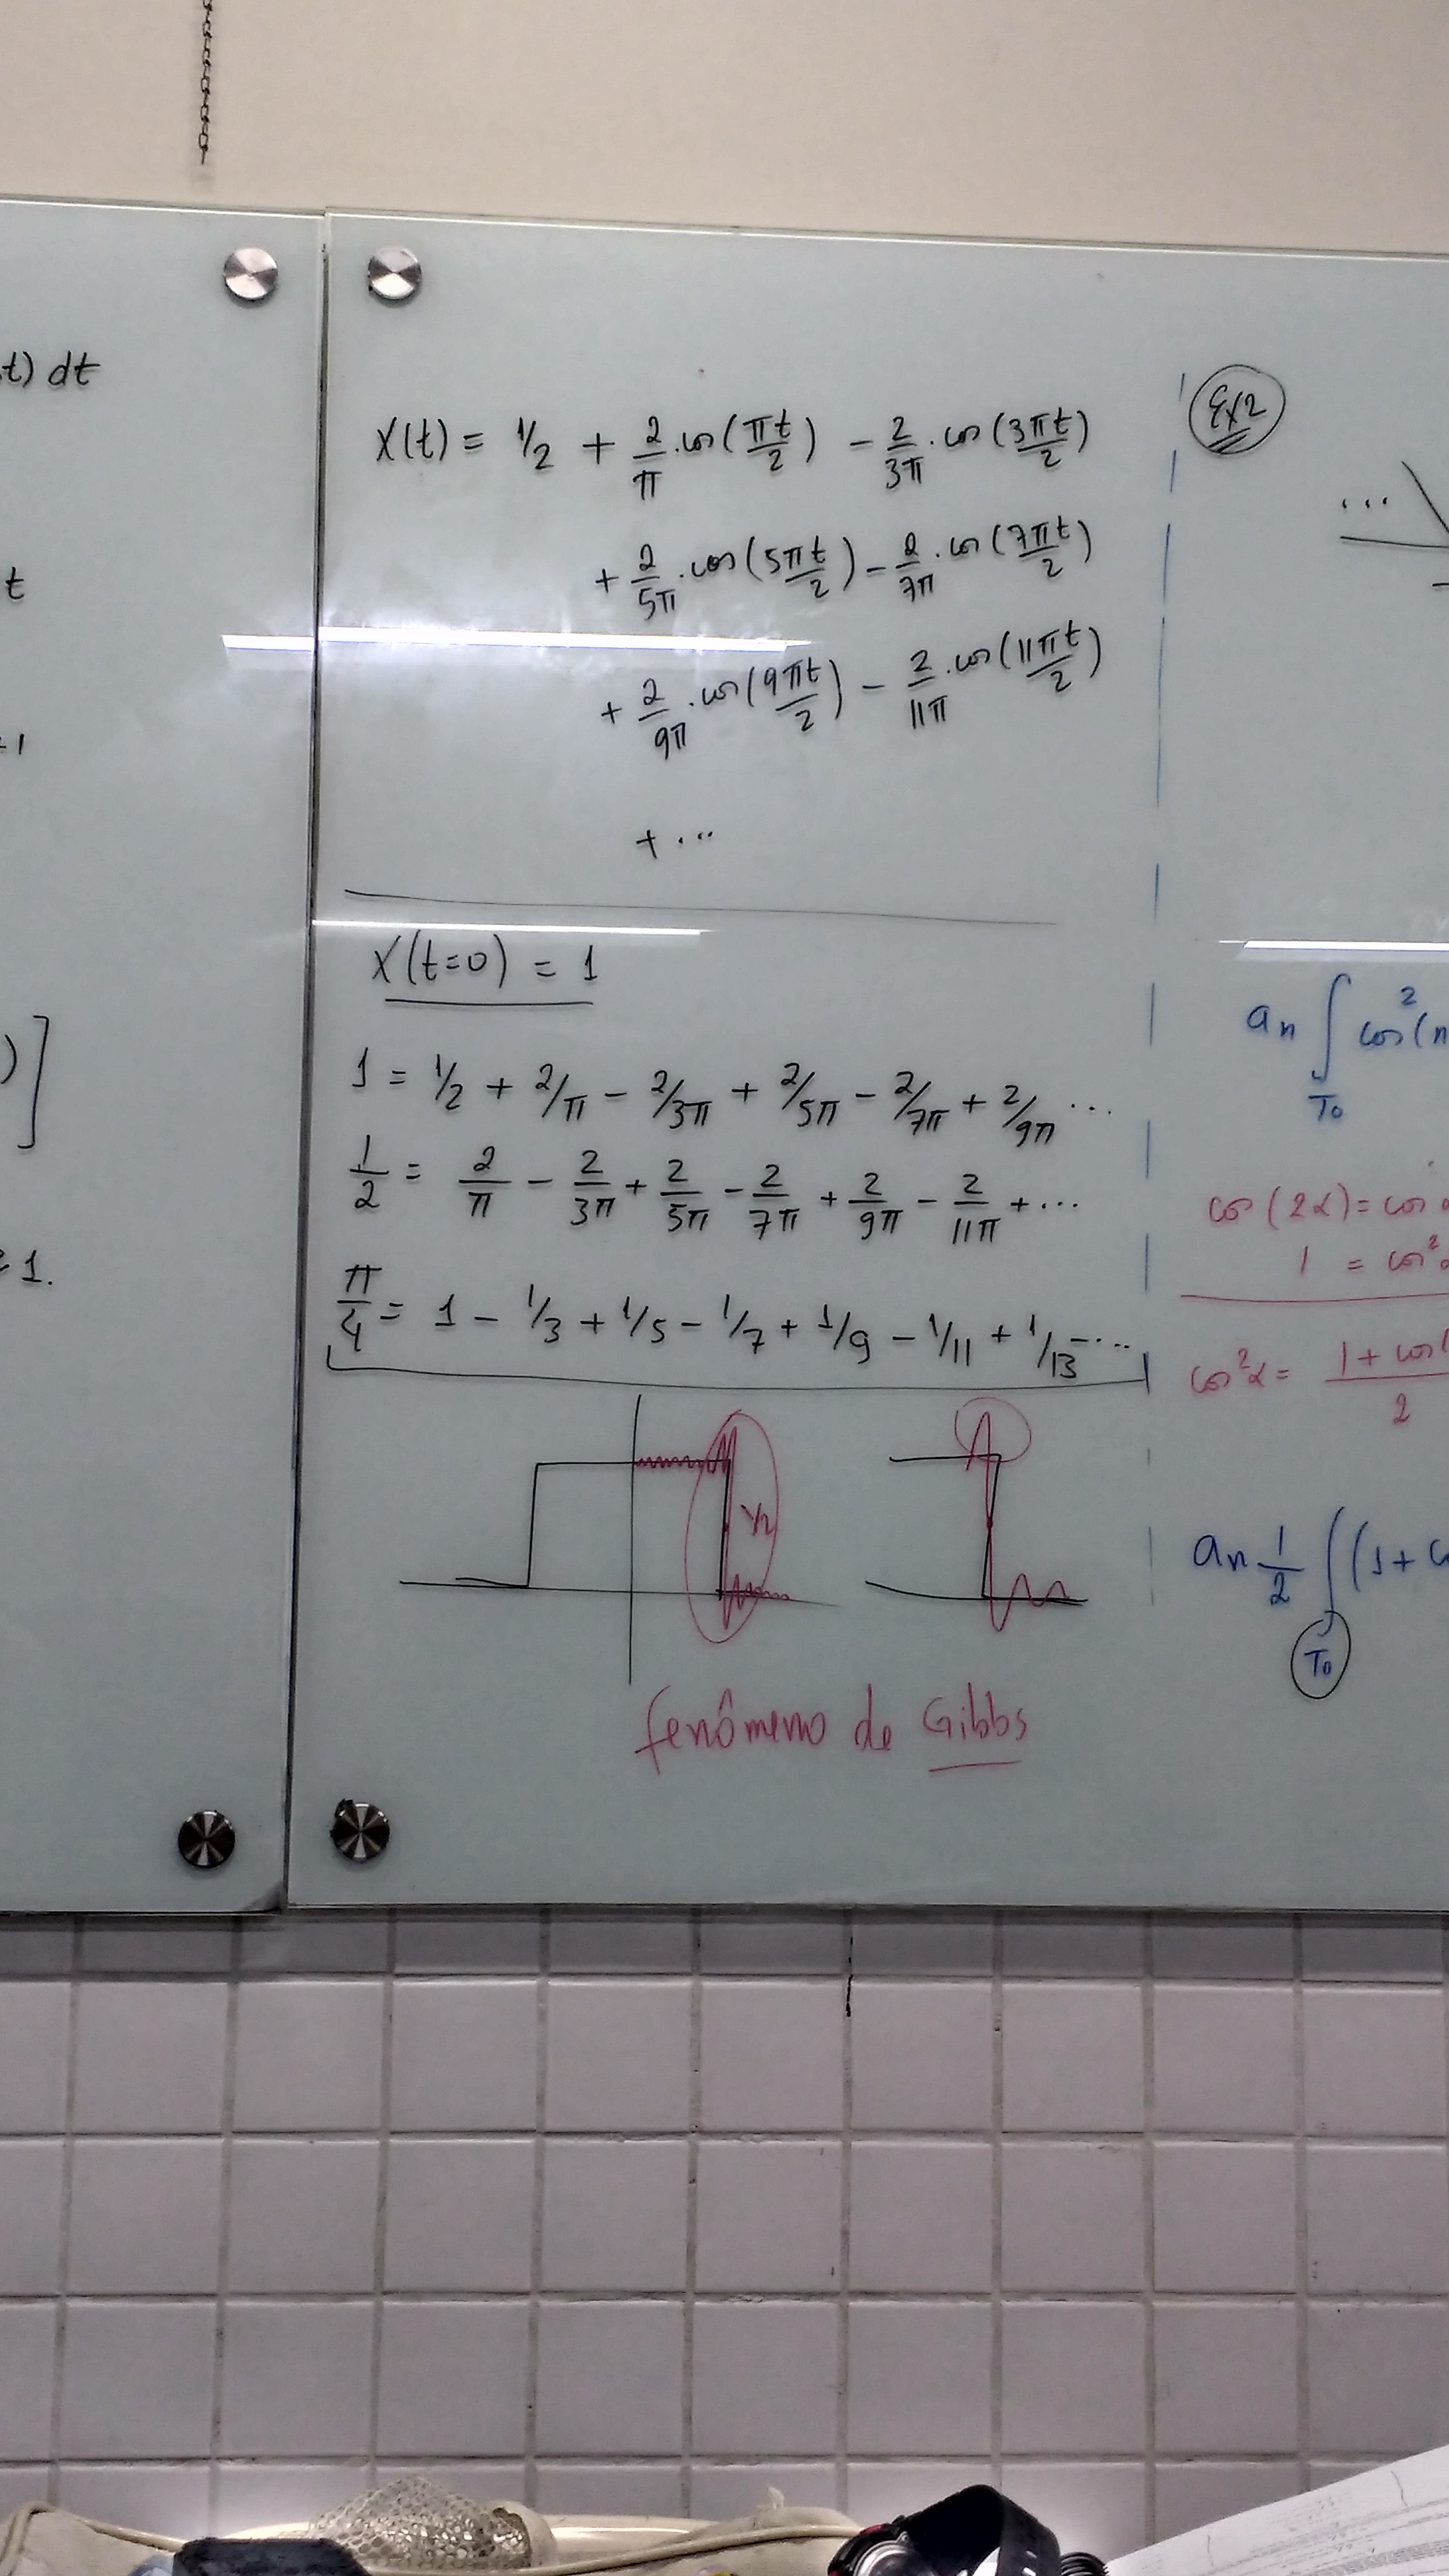 t) dt
t
1
)]
1.
x(t) = 1/2 + 2/π · cos(πt/2) - 2/3π · cos(3πt/2)
+ 2/5π · cos(5πt/2) - 2/7π · cos(7πt/2)
+ 2/9π · cos(9πt/2) - 2/11π · cos(11πt/2)
+ ...
x(t=0) = 1
1 = 1/2 + 2/π - 2/3π + 2/5π - 2/7π + 2/9π ...
1/2 = 2/π - 2/3π + 2/5π - 2/7π + 2/9π - 2/11π + ...
π/4 = 1 - 1/3 + 1/5 - 1/7 + 1/9 - 1/11 + 1/13 - ...
1/2
fenômeno de Gibbs
Ex2
...
an ∫T0 cos²(n
cos(2α) = cos
1 = cos²
cos²α = 1 + cos( / 2
an 1/2 ∫T0 (1 + c